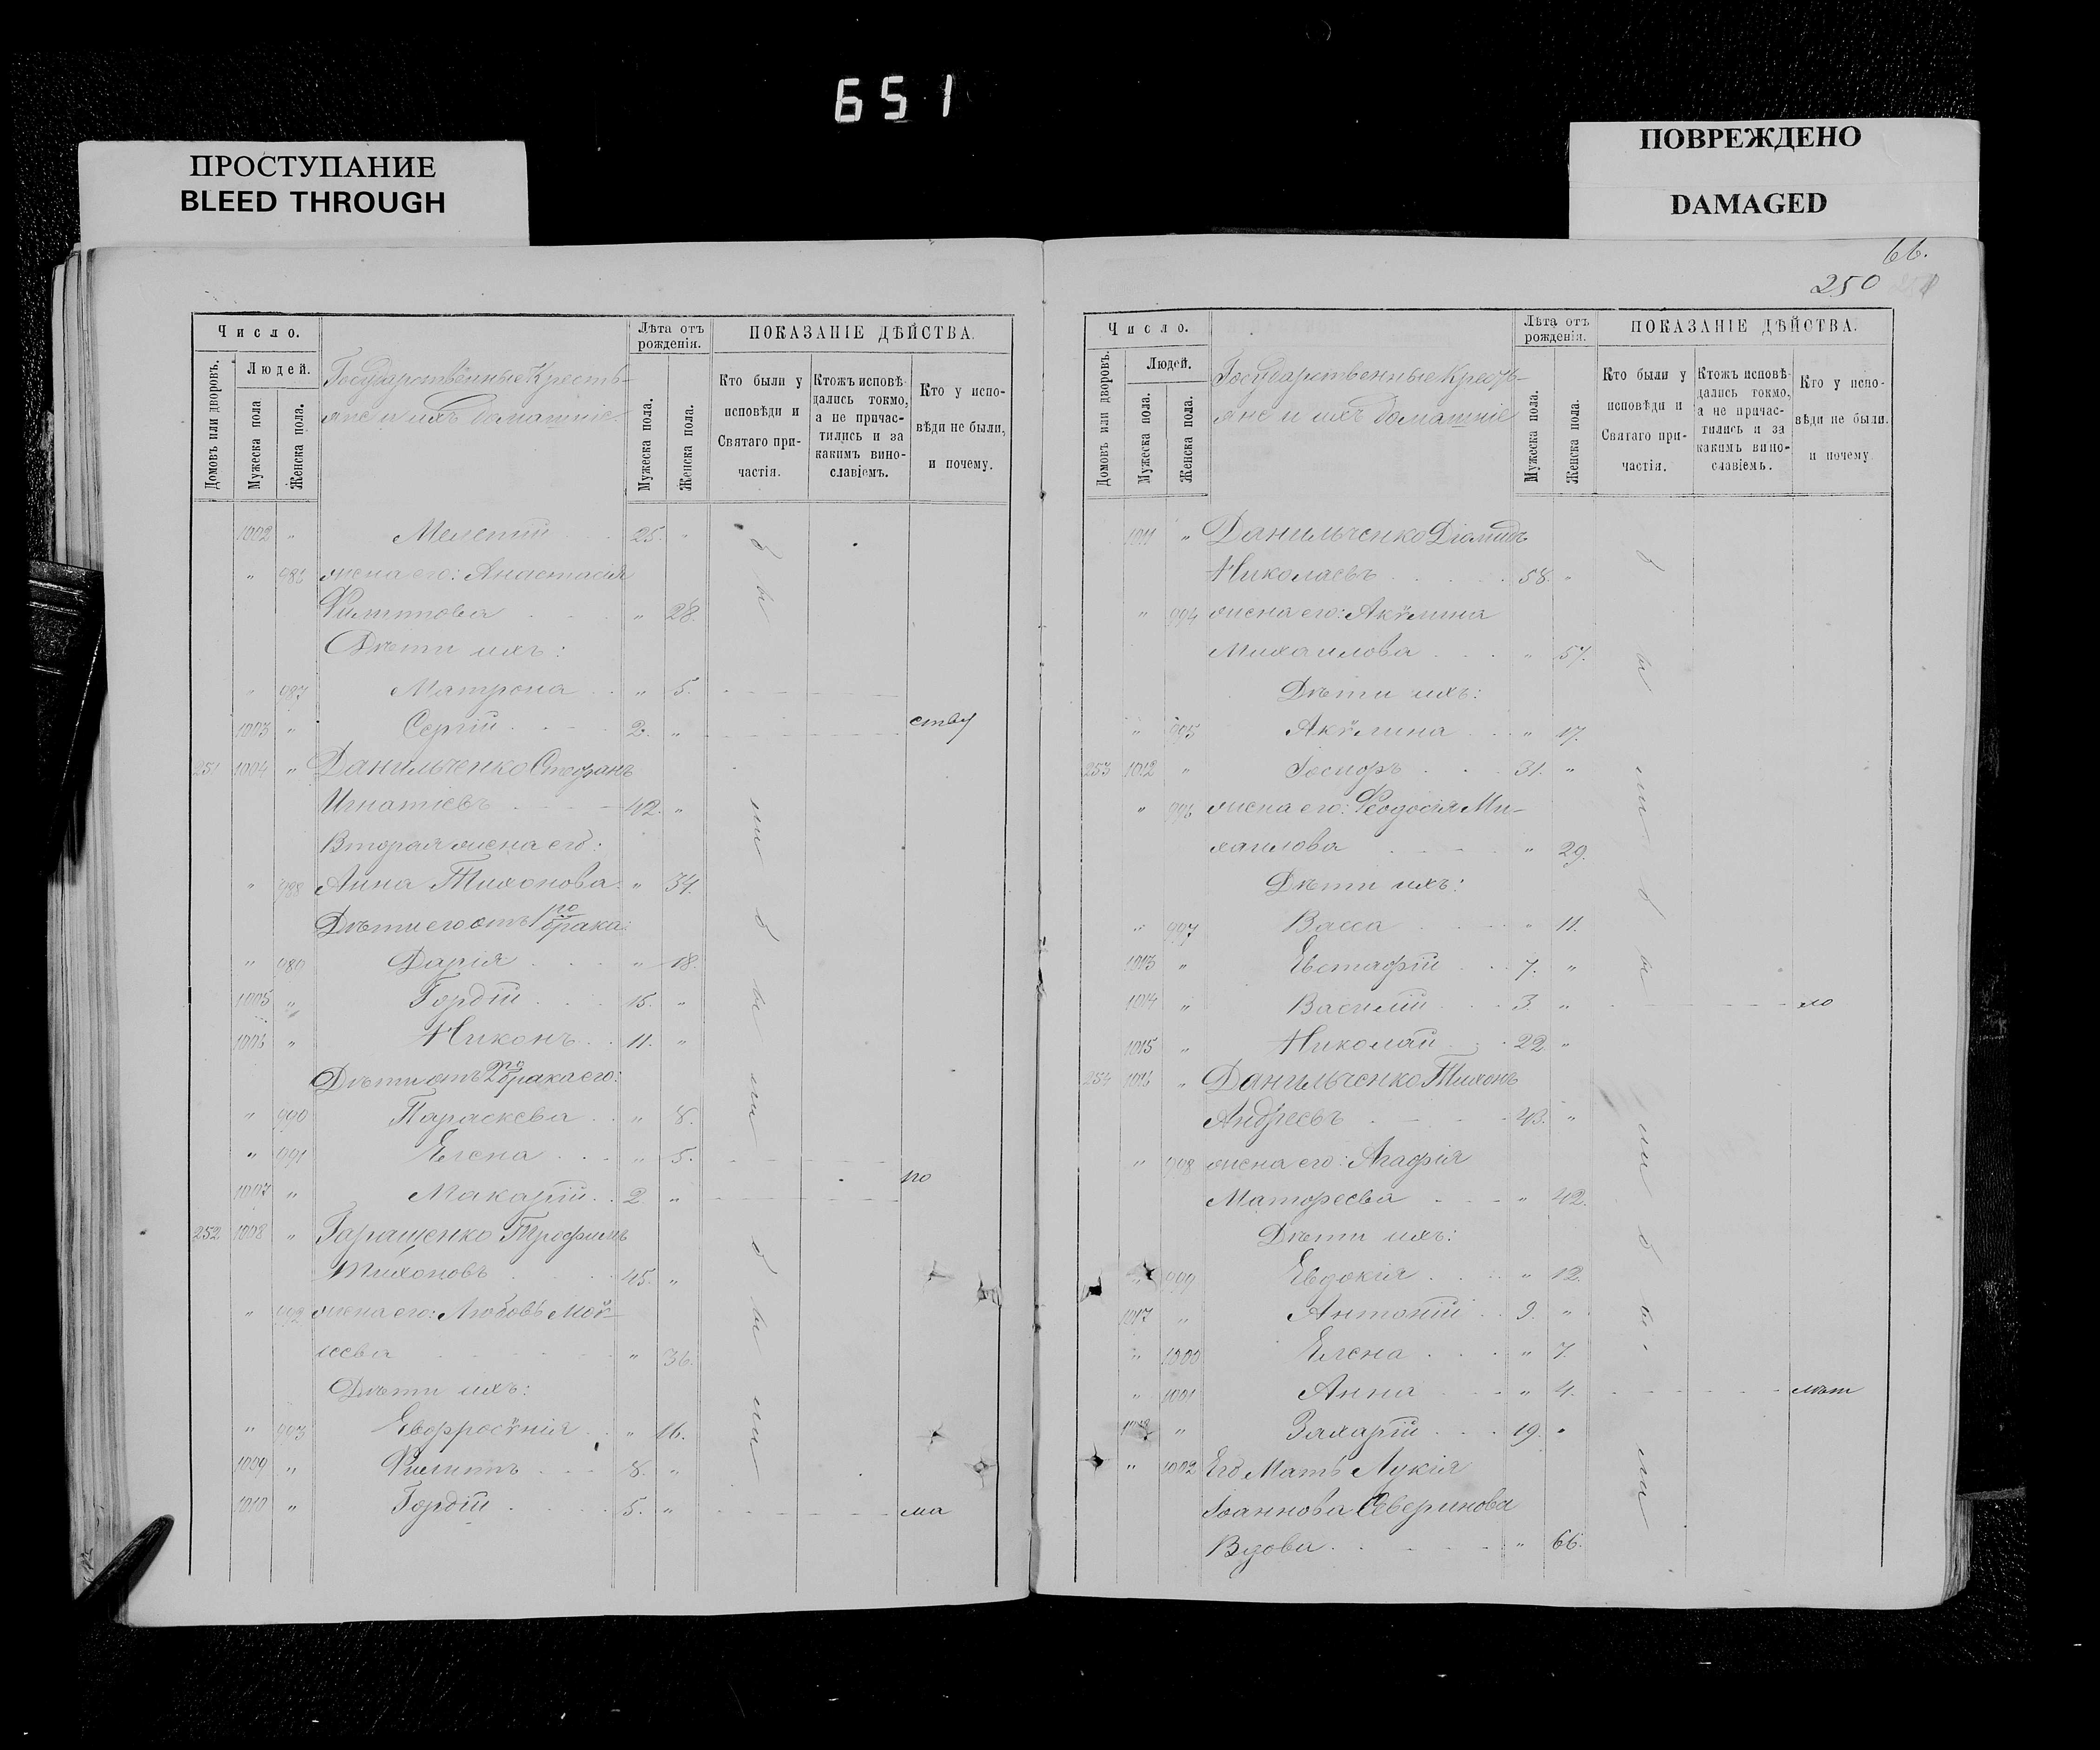 651
ПРОСТУПАНИЕ
BLEED THROUGH
ПОВРЕЖДЕНО
DAMAGED
66.
250
Число.
Людей.
Домовъ или дворовъ.
Мужеска пола
Женска пола.
Государственные Кресть-
яне и ихъ домашніе
Лѣта отъ рожденія.
Мужеска пола.
Женска пола.
ПОКАЗАНІЕ ДѢЙСТВА.
Кто были у исповѣди и Святаго причастія.
Ктожъ исповѣдались токмо, а не причастились и за какимъ винославіемъ.
Кто у исповѣди не были, и почему.
1002 " Мелетій 25. "
" 986 жена его: Анастасія
Филиппова " 28.
Дѣти ихъ:
" 987 Матрона " 5.
1003 " Сергій 2. " ству
251 1004 " Данильченко Стефанъ
Игнатіевъ 42. "
Вторая жена его:
" 988 Анна Тихонова "
Дѣти его отъ 1го брака:
" 989 Дарія " 18.
1005 " Гордій 15. "
1006 " Никонъ 11. "
Дѣти отъ 2го брака его:
" 990 Параскева " 8.
" 991 Елена " 5.
1007 " Макарій 2. " по
252 1008 " Гаращенко Трофимъ
Тихоновъ 45. "
" 992 жена его: Любовь Мой-
сеева " 36.
Дѣти ихъ:
" 993 Евфросѵнія " 16.
1009 " Филиппъ 8. "
1010 " Гордій 5. " ма
были были были
Число.
Людей.
Домовъ или дворовъ.
Мужеска пола.
Женска пола.
Государственные Кресть-
яне и ихъ домашніе
Лѣта отъ рожденія.
Мужеска пола.
Женска пола.
ПОКАЗАНІЕ ДѢЙСТВА.
Кто были у исповѣди и Святаго причастія.
Ктожъ исповѣдались токмо, а не причастились и за какимъ винославіемъ.
Кто у исповѣди не были. и почему
1011 " Данильченко Діомидъ
Николаевъ 58. "
" 994 жена его: Акѵлина
Михаилова " 57.
Дѣти ихъ:
" 995 Акѵлина " 17.
253 1012 " 31. "
" 996 жена его: Ѳеодосія Ми-
хаилова " 29.
Дѣти ихъ:
" 997 Васса " 11.
1013 " Евстафій 7. "
1014 " Василій 3. " ло
1015 " Николай 22. "
254 1016 " Данильченко Тихонъ
Андреевъ 43. "
" 998 жена его: Агафія
Матфеева " 42.
Дѣти ихъ:
" 999 Евдокія " 12.
1017 " Антоній 9. "
" 1000 Елена " 7.
" 1001 Анна " 4. лѣт
1018 " Захарій 19. "
" 1002 Его Мать Лукія
Іоаннова Северинова
Вдова " 66.
были были